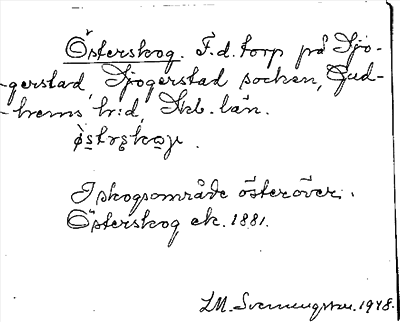 Österskog. F.d. torp på Sjo-
gerstad, Sjogerstad socken, Gud-
hems h:d, Skb. län.

I skogsområde österöver.
Österskog ek. 1881.
L.M. Svenungsson. 1948.